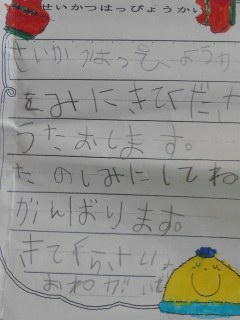 せいかつはっぴょうかい
せいかつはっぴょうか
をみにきてくださ
うたおします。
たのしみにしてね
がんばります。
きてください
おねがい